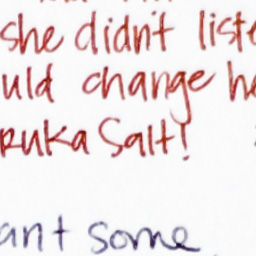 she didn't liste
uld change he
RUKA Salt!
ant some